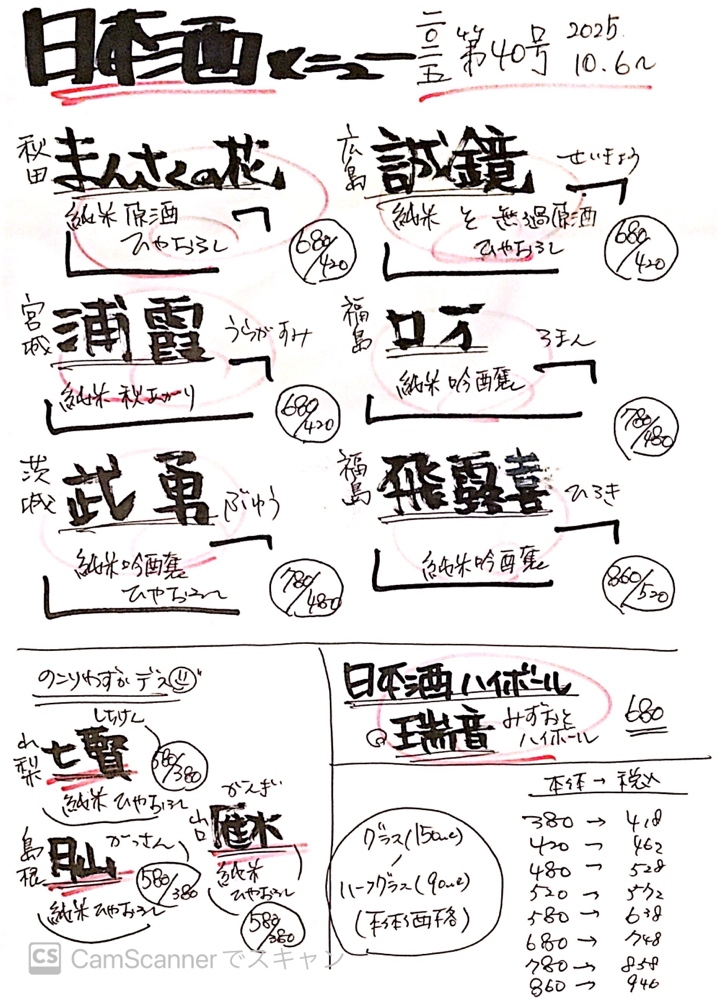 日本酒メニュー
二〇二五 第40号 2025. 10.6〜
秋田 まんさくの花
純米原酒
ひやおろし
680/420
広島 誠鏡 せいきょう
純米 無過原酒
ひやおろし
680/420
宮城 浦霞 うらがすみ
純米 秋あがり
680/420
福島 ロ万 ろまん
純米吟醸
780/480
茨城 武勇 ぶゆう
純米吟醸
ひやおろし
780/480
福島 飛露喜 ひろき
純米吟醸
860/520
のこりわずかデス
山梨 七賢 しちけん
純米 ひやおろし
580/380
島根 月山 がっさん
純米 ひやおろし
580/380
山口 雁木 がんぎ
純米
ひやおろし
580/380
日本酒ハイボール
瑞音 みずおと
ハイボール
680
グラス(150cc)
/
ハーフグラス(90cc)
(本体価格)
本体 → 税込
380 → 418
420 → 462
480 → 528
520 → 572
580 → 638
680 → 748
780 → 858
860 → 946
CS CamScannerでスキャン